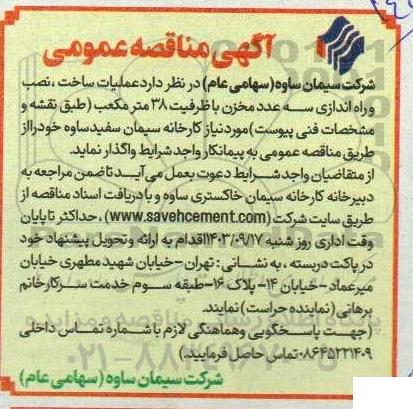 آگهی مناقصه عمومی
شرکت سیمان ساوه (سهامی عام) در نظر دارد عملیات ساخت ، نصب
و راه اندازی سه عدد مخزن با ظرفیت ۳۸ متر مکعب (طبق نقشه و
مشخصات فنی پیوست) مورد نیاز کارخانه سیمان سفید ساوه خود را از
طریق مناقصه عمومی به پیمانکار واجد شرایط واگذار نماید.
از متقاضیان واجد شرایط دعوت بعمل می آید تا ضمن مراجعه به
دبیرخانه کارخانه سیمان خاکستری ساوه و یا دریافت اسناد مناقصه از
طریق سایت شرکت (www.savehcement.com) ، حداکثر تا پایان
وقت اداری روز شنبه ۱۴۰۳/۰۹/۱۷ اقدام به ارائه و تحویل پیشنهاد خود
در پاکت دربسته ، به نشانی : تهران – خیابان شهید مطهری خیابان
میرعماد – خیابان ۱۴ – پلاک ۱۶ – طبقه سوم خدمت سرکار خانم
برهانی (نماینده حراست) نمایند.
(جهت پاسخگویی و هماهنگی لازم با شماره تماس داخلی
۰۸۶۴۵۲۲۱۴۰۹ تماس حاصل فرمایید.)
شرکت سیمان ساوه (سهامی عام)